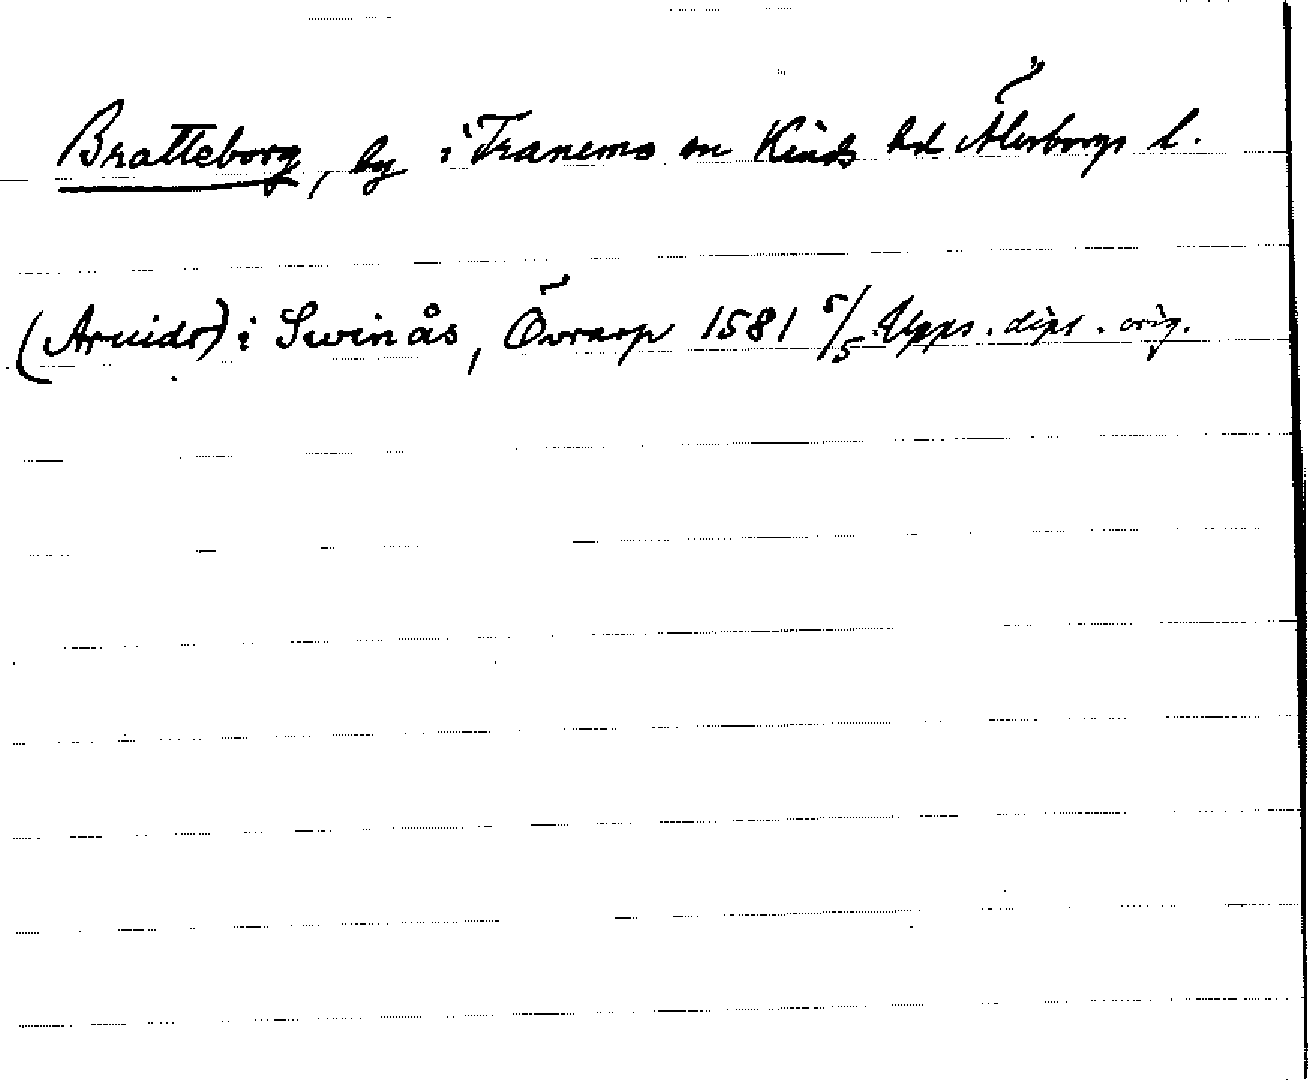 Bratteborg, by i Tranemo sn Kinds hd Älvsborgs l.
(Aruids) i Swinås, Övrarp 1581 5/5 Upps. dipl. orig.